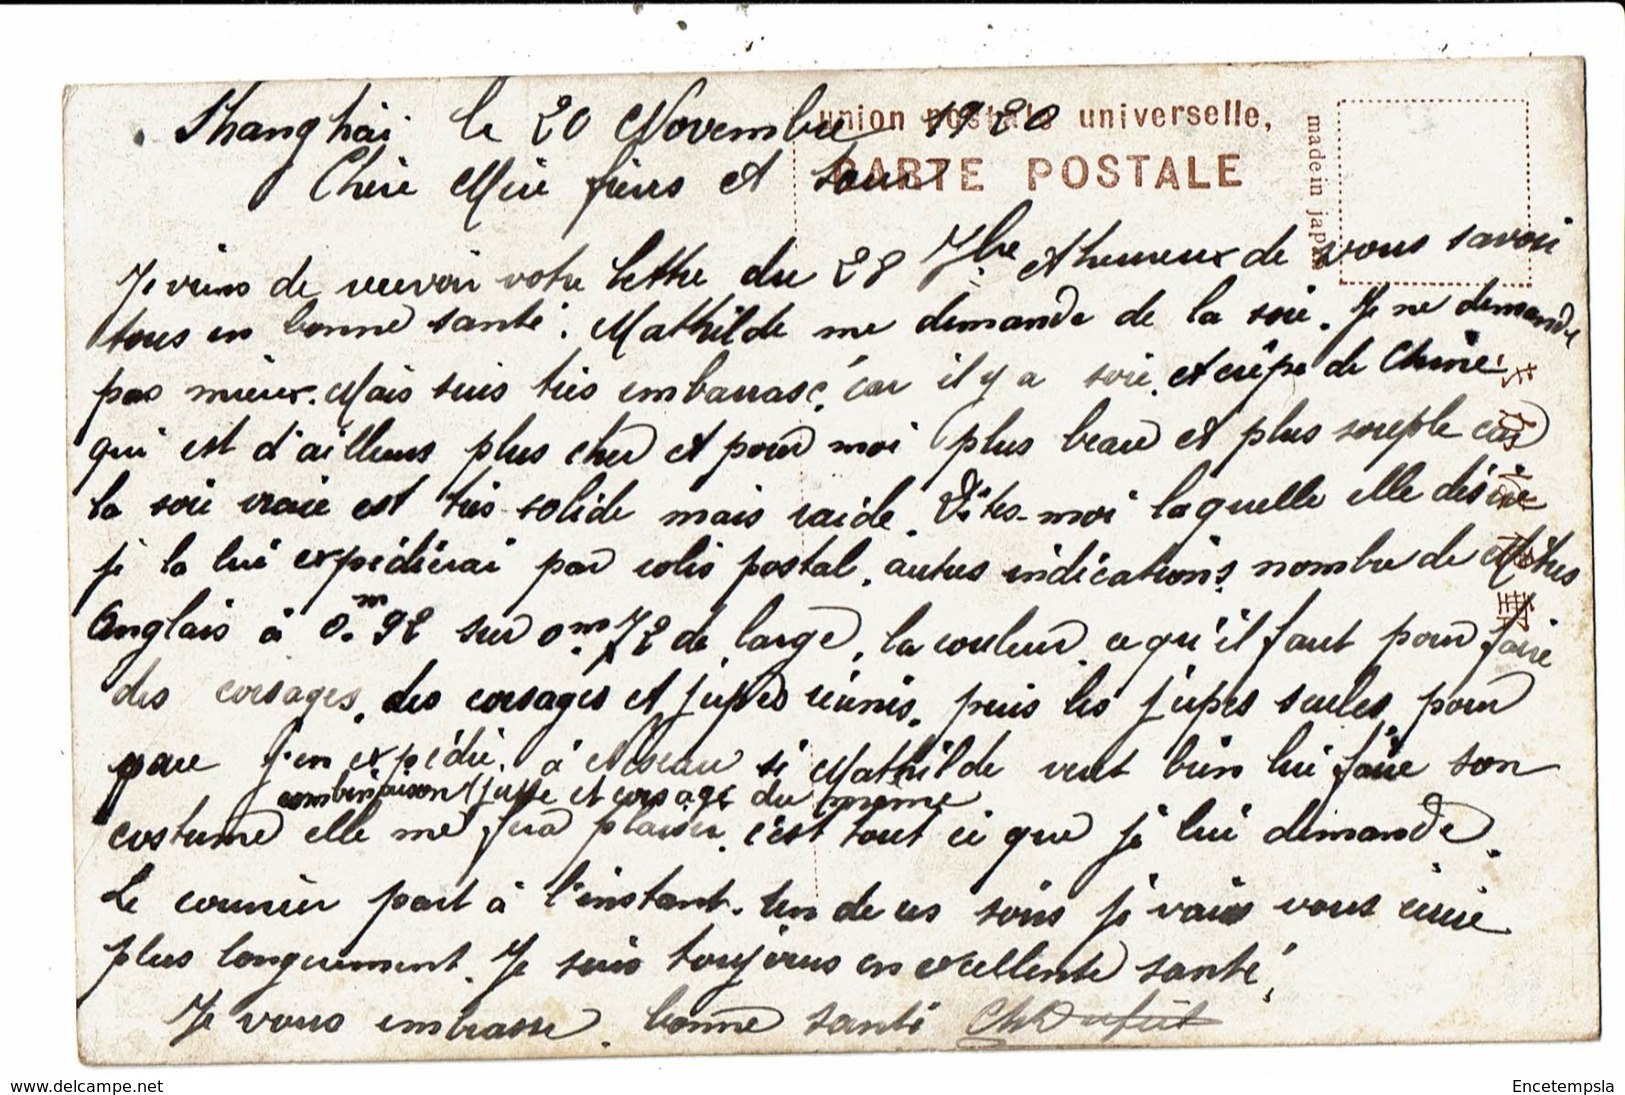 union postale universelle,
CARTE POSTALE
made in japan
Shanghai le 20 Novembre 1920
Chère Mère frères et sœur
Je viens de recevoir votre lettre du 28 7bre et heureux de vous savoir
tous en bonne santé. Mathilde me demande de la soie. Je ne demande
pas mieux. Mais suis très embarassé, car il y a soie et crêpe de Chine
qui est d'ailleurs plus cher et pour moi plus beau et plus souple car
la soie vraie est très solide mais raide. Dites-moi laquelle elle désire
je la lui expédierai par colis postal. autres indications, nombre de Mètres
Anglais à 0.m92 sur 0m.72 de large, la couleur, ce qu'il faut pour faire
des corsages, des corsages et jupes réunis, puis les jupes seules, pour
que j'en expédie à si Mathilde veut bien lui faire son
combinaison (jupe et corsage du même
costume elle me fera plaisir, c'est tout ce que je lui demande.
Le courrier part à l'instant. Un de ces soirs je vais vous écrire
plus longuement. Je suis toujours en excellente santé.
Je vous embrasse. bonne santé
delcampe.net
Encetempsla